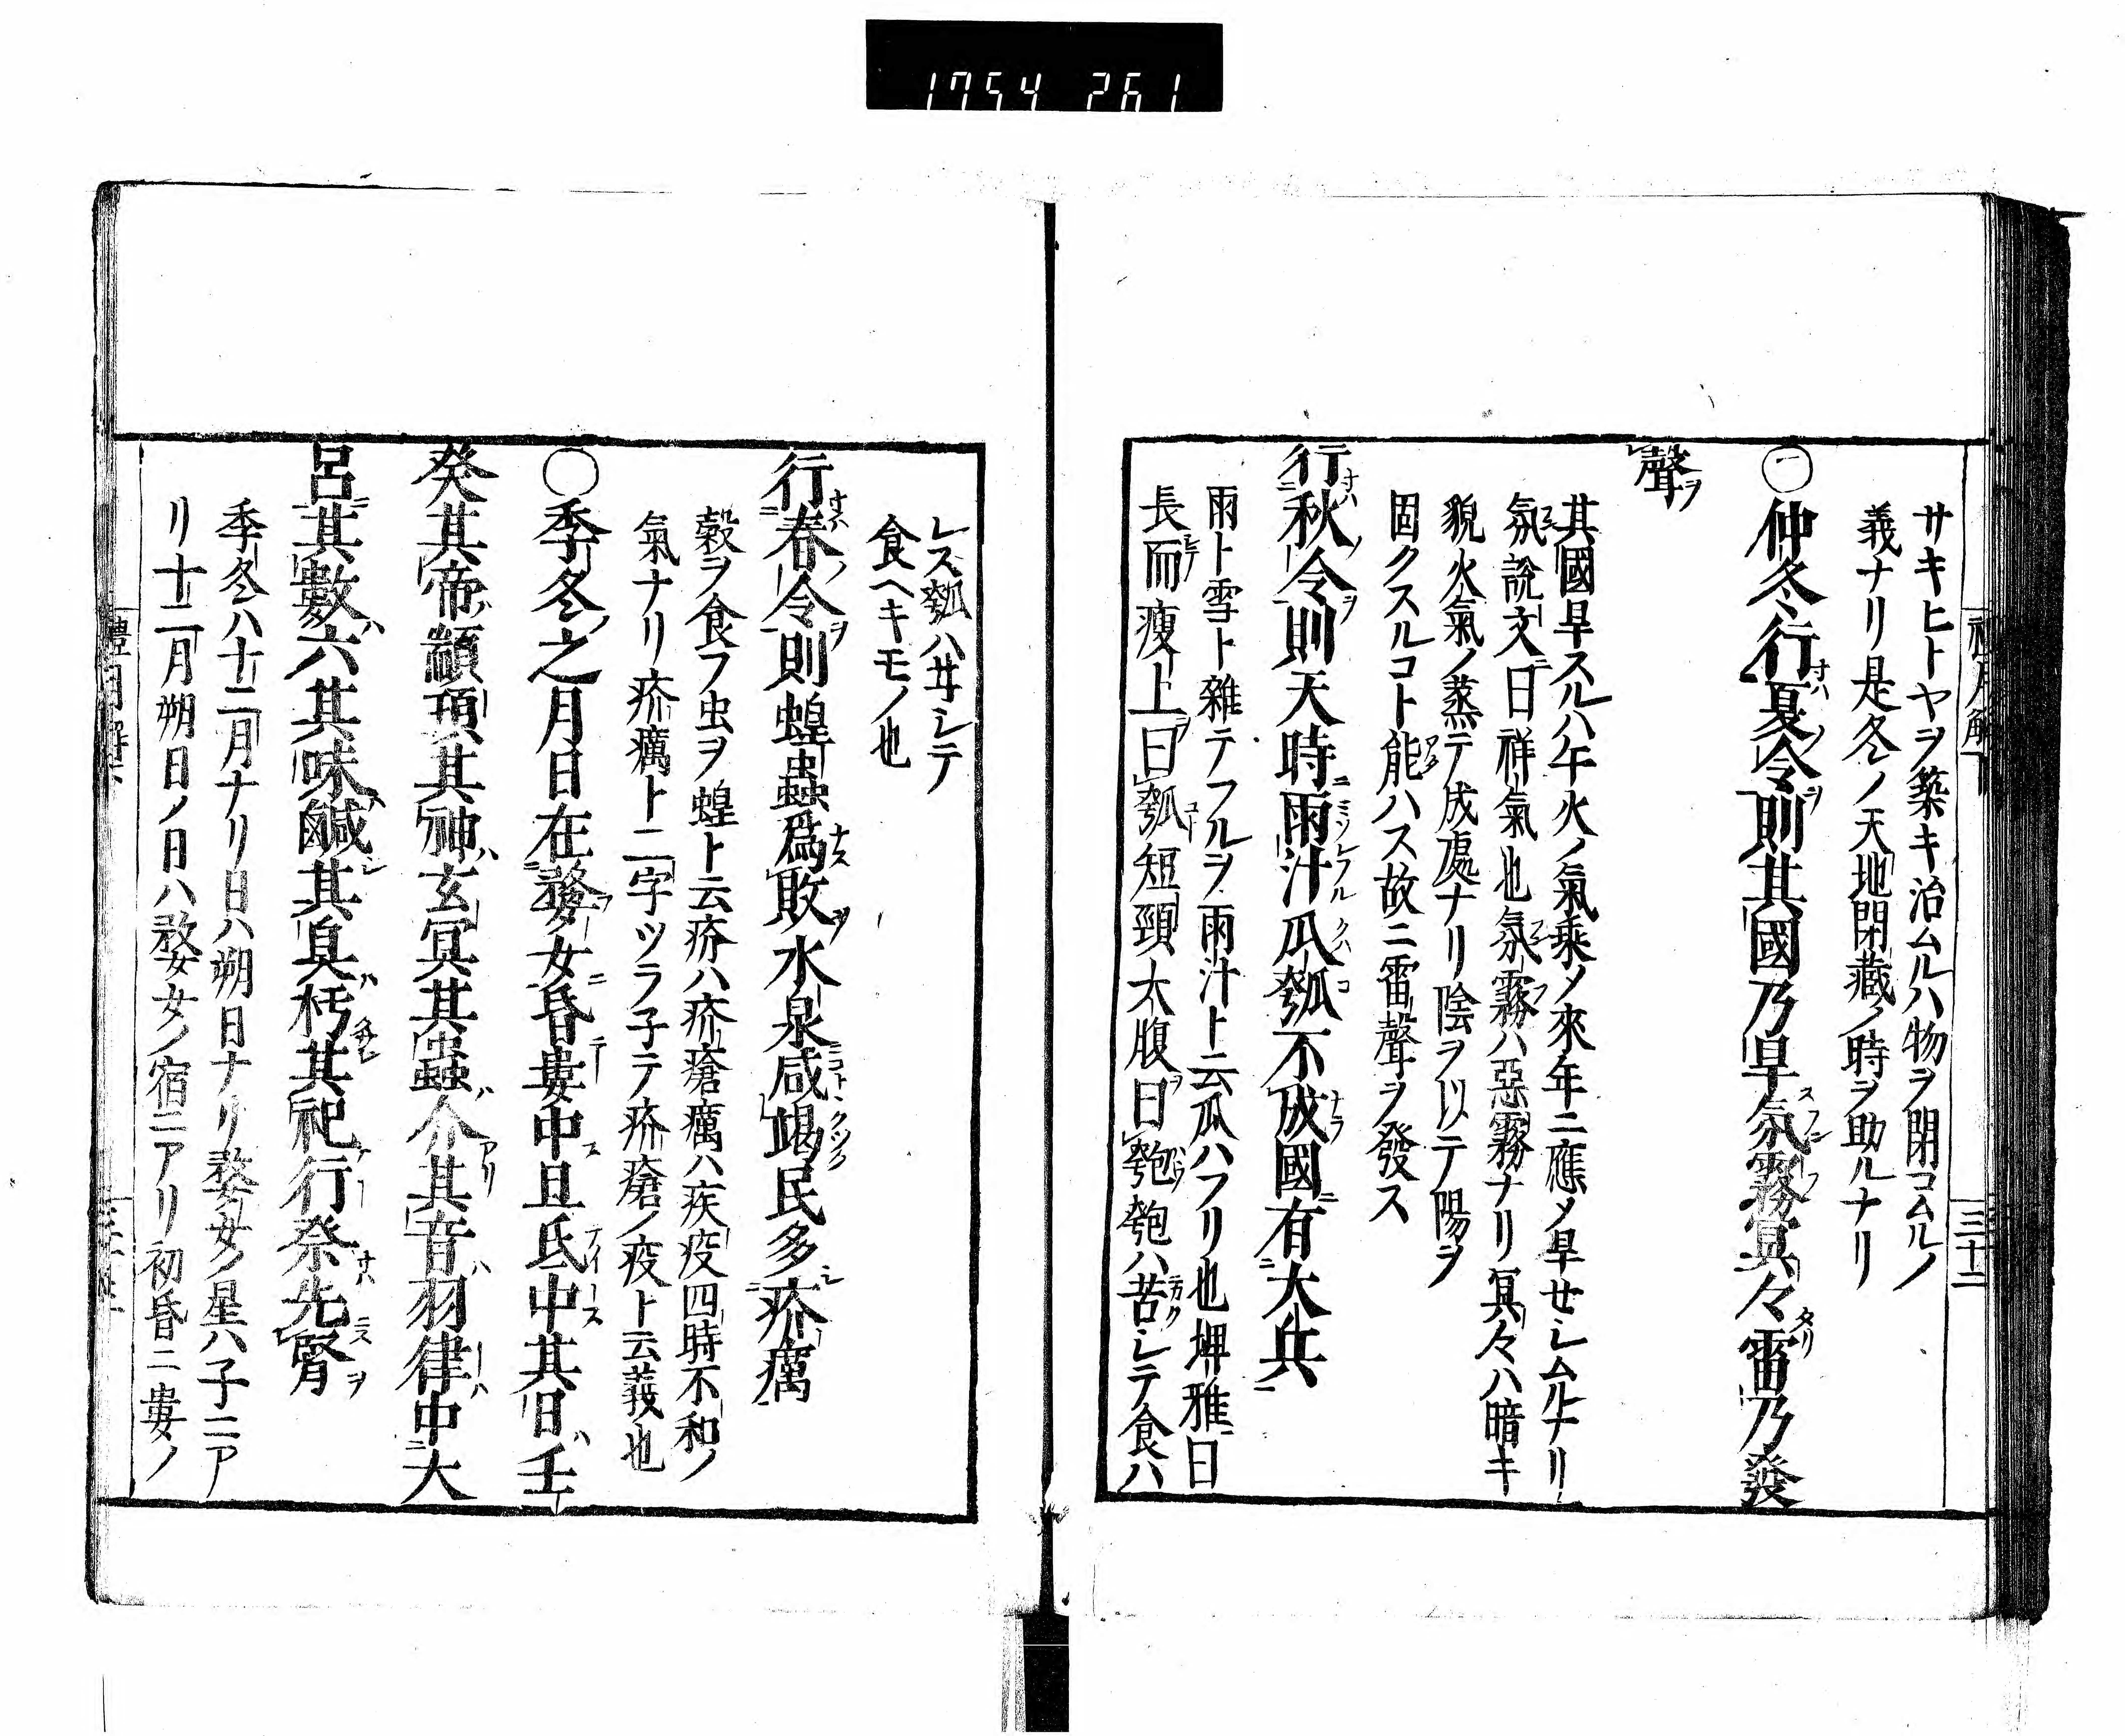 1754 261
サキヒトヤヲ築キ治ムルハ物ヲ閉コムルノ
義ナリ是冬ノ天地閉藏ノ時ヲ助ルナリ
㊀仲冬行夏令則其國乃旱氛霧冥々雷乃發
聲
其國旱スルハ午火ノ氣乘メ來年ニ應メ旱せシムルナリ
氛說文曰祥氣也氛霧ハ惡霧ナリ冥々ハ暗キ
貌火氣ノ蒸テ成處ナリ陰ヲ以テ陽ヲ
固クスルコト能ハス故ニ雷聲ヲ發ス
行秋令則天時雨汁瓜瓠不成國有大兵
雨ト雪ト雜テフルヲ雨汁ト云瓜ハフリ也埤雅曰
長而瘦上曰瓠短頸大腹曰匏匏ハ苦シテ食ハ
レス瓠ハ甘シテ
食ヘキモノ也
行春令則蝗蟲爲敗水泉咸竭民多疥癘
穀ヲ食フ虫ヲ蝗ト云疥ハ疥瘡癘ハ疾疫四時不和ノ
氣ナリ疥癘ト二字ツラ子テ疥瘡ノ疫ト云義也
○季冬之月日在婺女昏婁中旦氐中其日壬
癸其帝顓頊其神玄冥其蟲介其音羽律中大
呂其數六其味鹹其臭朽其祀行祭先腎
季冬ハ十二月ナリ日ハ朔日ナリ婺女ノ星ハ子ニア
リ十二月朔日ノ日ハ婺女ノ宿ニアリ初昏ニ婁ノ